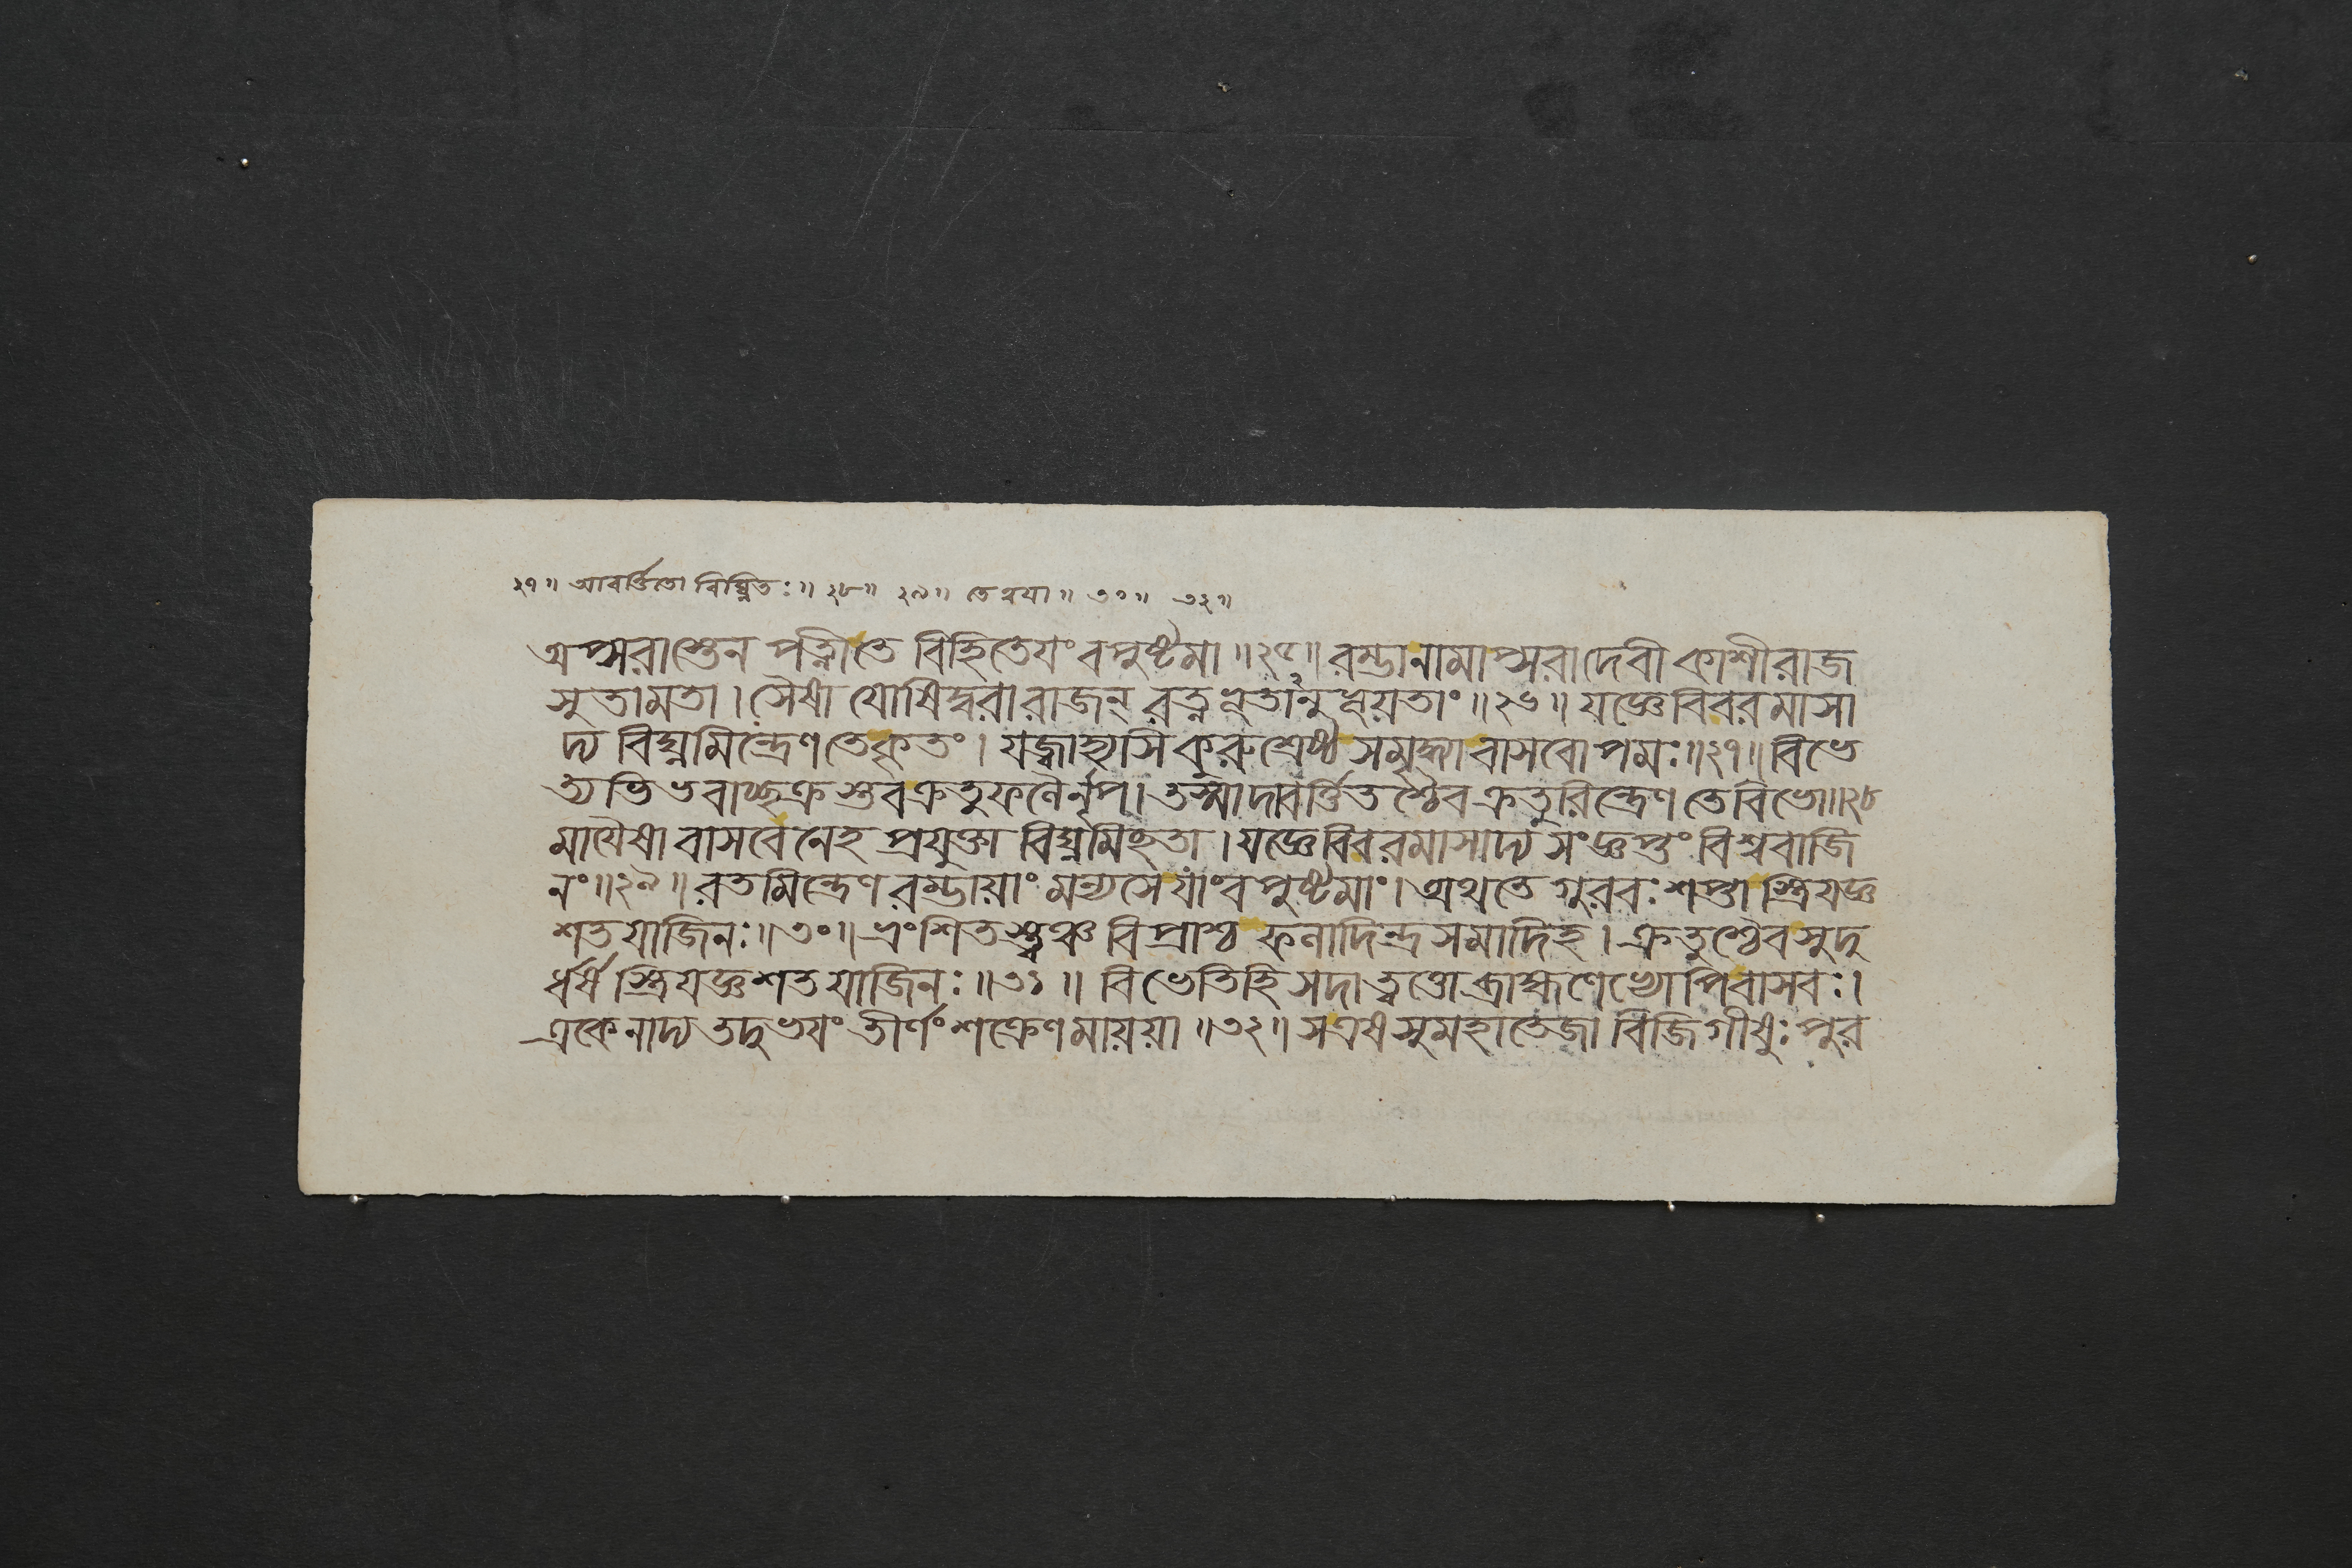 ২৭॥ আবর্ত্তিতো বিঘ্নিতঃ॥ ২৮॥ ২৯॥ তে ত্বয়া॥ ৩০॥ ৩২॥
অপ্সরাস্তেন পত্নীতে বিহিতেয়ং বপুষ্টমা॥২৫॥ রম্ভানামাপ্সরাদেবী কাশীরাজ
সুতামতা। সৈষা যোষিদ্বরা রাজন্ রত্নভূতানুভূয়তাং॥২৬॥ যজ্ঞেবিবরমাসা
দ্য বিঘ্নমিন্দ্রেণতেকৃতং। যজ্বাহ্যসি কুরুশ্রেষ্ঠ সমৃদ্ধ্যা বাসবোপমঃ॥২৭॥ বিভে
ত্যভিভবাচ্ছক্রস্তবক্রতুফলৈর্নৃপ। তস্মাদাবর্ত্তিতশ্চৈব ক্রতুরিন্দ্রেণ তেবিভো॥২৮
মায়ৈষা বাসবেনেহ প্রযুক্তা বিঘ্নমিচ্ছতা। যজ্ঞেবিবরমাসাদ্য সংজ্ঞপ্তং বিশ্ববাজি
নং॥২৯॥ রতমিন্দ্রেণ রম্ভায়াং মন্যসেযাংবপুষ্টমাং। অথতে গুরবঃ শপ্তা স্ত্রিযজ্ঞ
শতযাজিনঃ॥৩০॥ ভ্রংশিতস্ত্বঞ্চ বিপ্রাশ্চ ফলাদিন্দ্রসমাদিহ। ক্রতুশ্চৈবসুদু
র্ধর্ষ স্ত্রিযজ্ঞশতযাজিনঃ॥৩১॥ বিভেতিহি সদা ত্বত্তো ব্রাহ্মণেভ্যোপিবাসবঃ।
একেনাদ্য তদুভয়ং তীর্ণং শক্রেণমায়য়া॥৩২॥ সএষ সুমহাতেজা বিজিগীষুঃ পুর